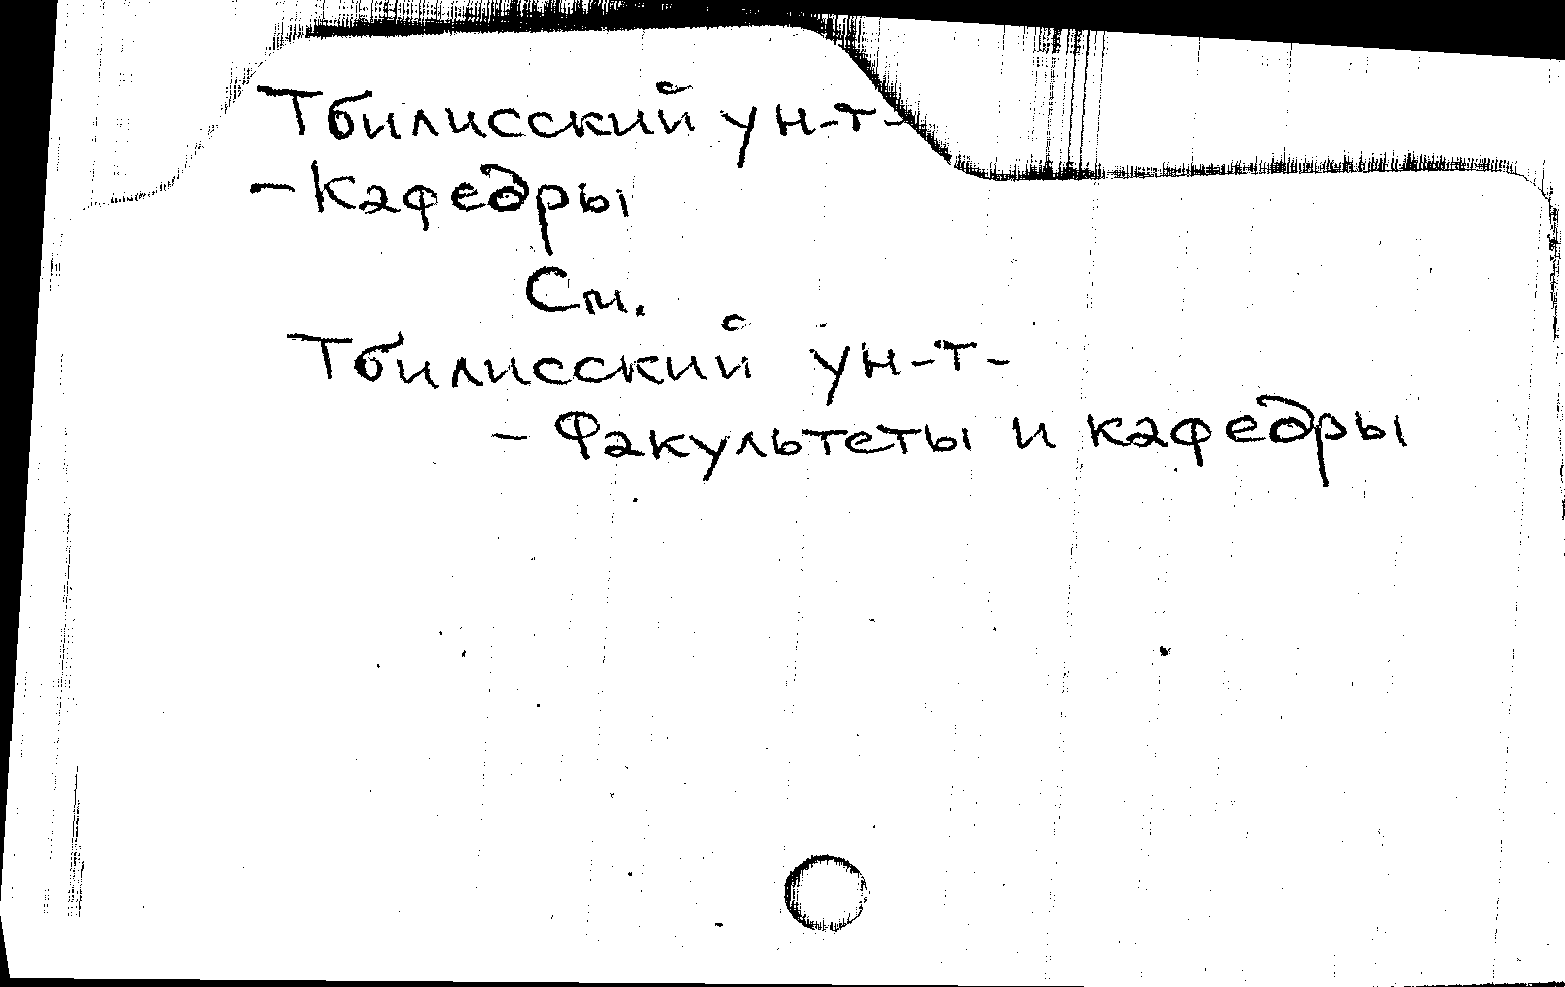 Тбилисский ун-т-
-Кафедры
См.
Тбилисский ун-т-
- Факультеты и кафедры